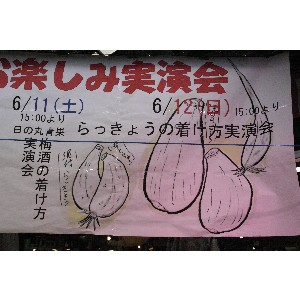 お楽しみ実演会
6/11(土)
15:00より
日の丸青果
梅酒の着け方
実演会
6/12(日)
15:00より
らっきょうの着け方実演会